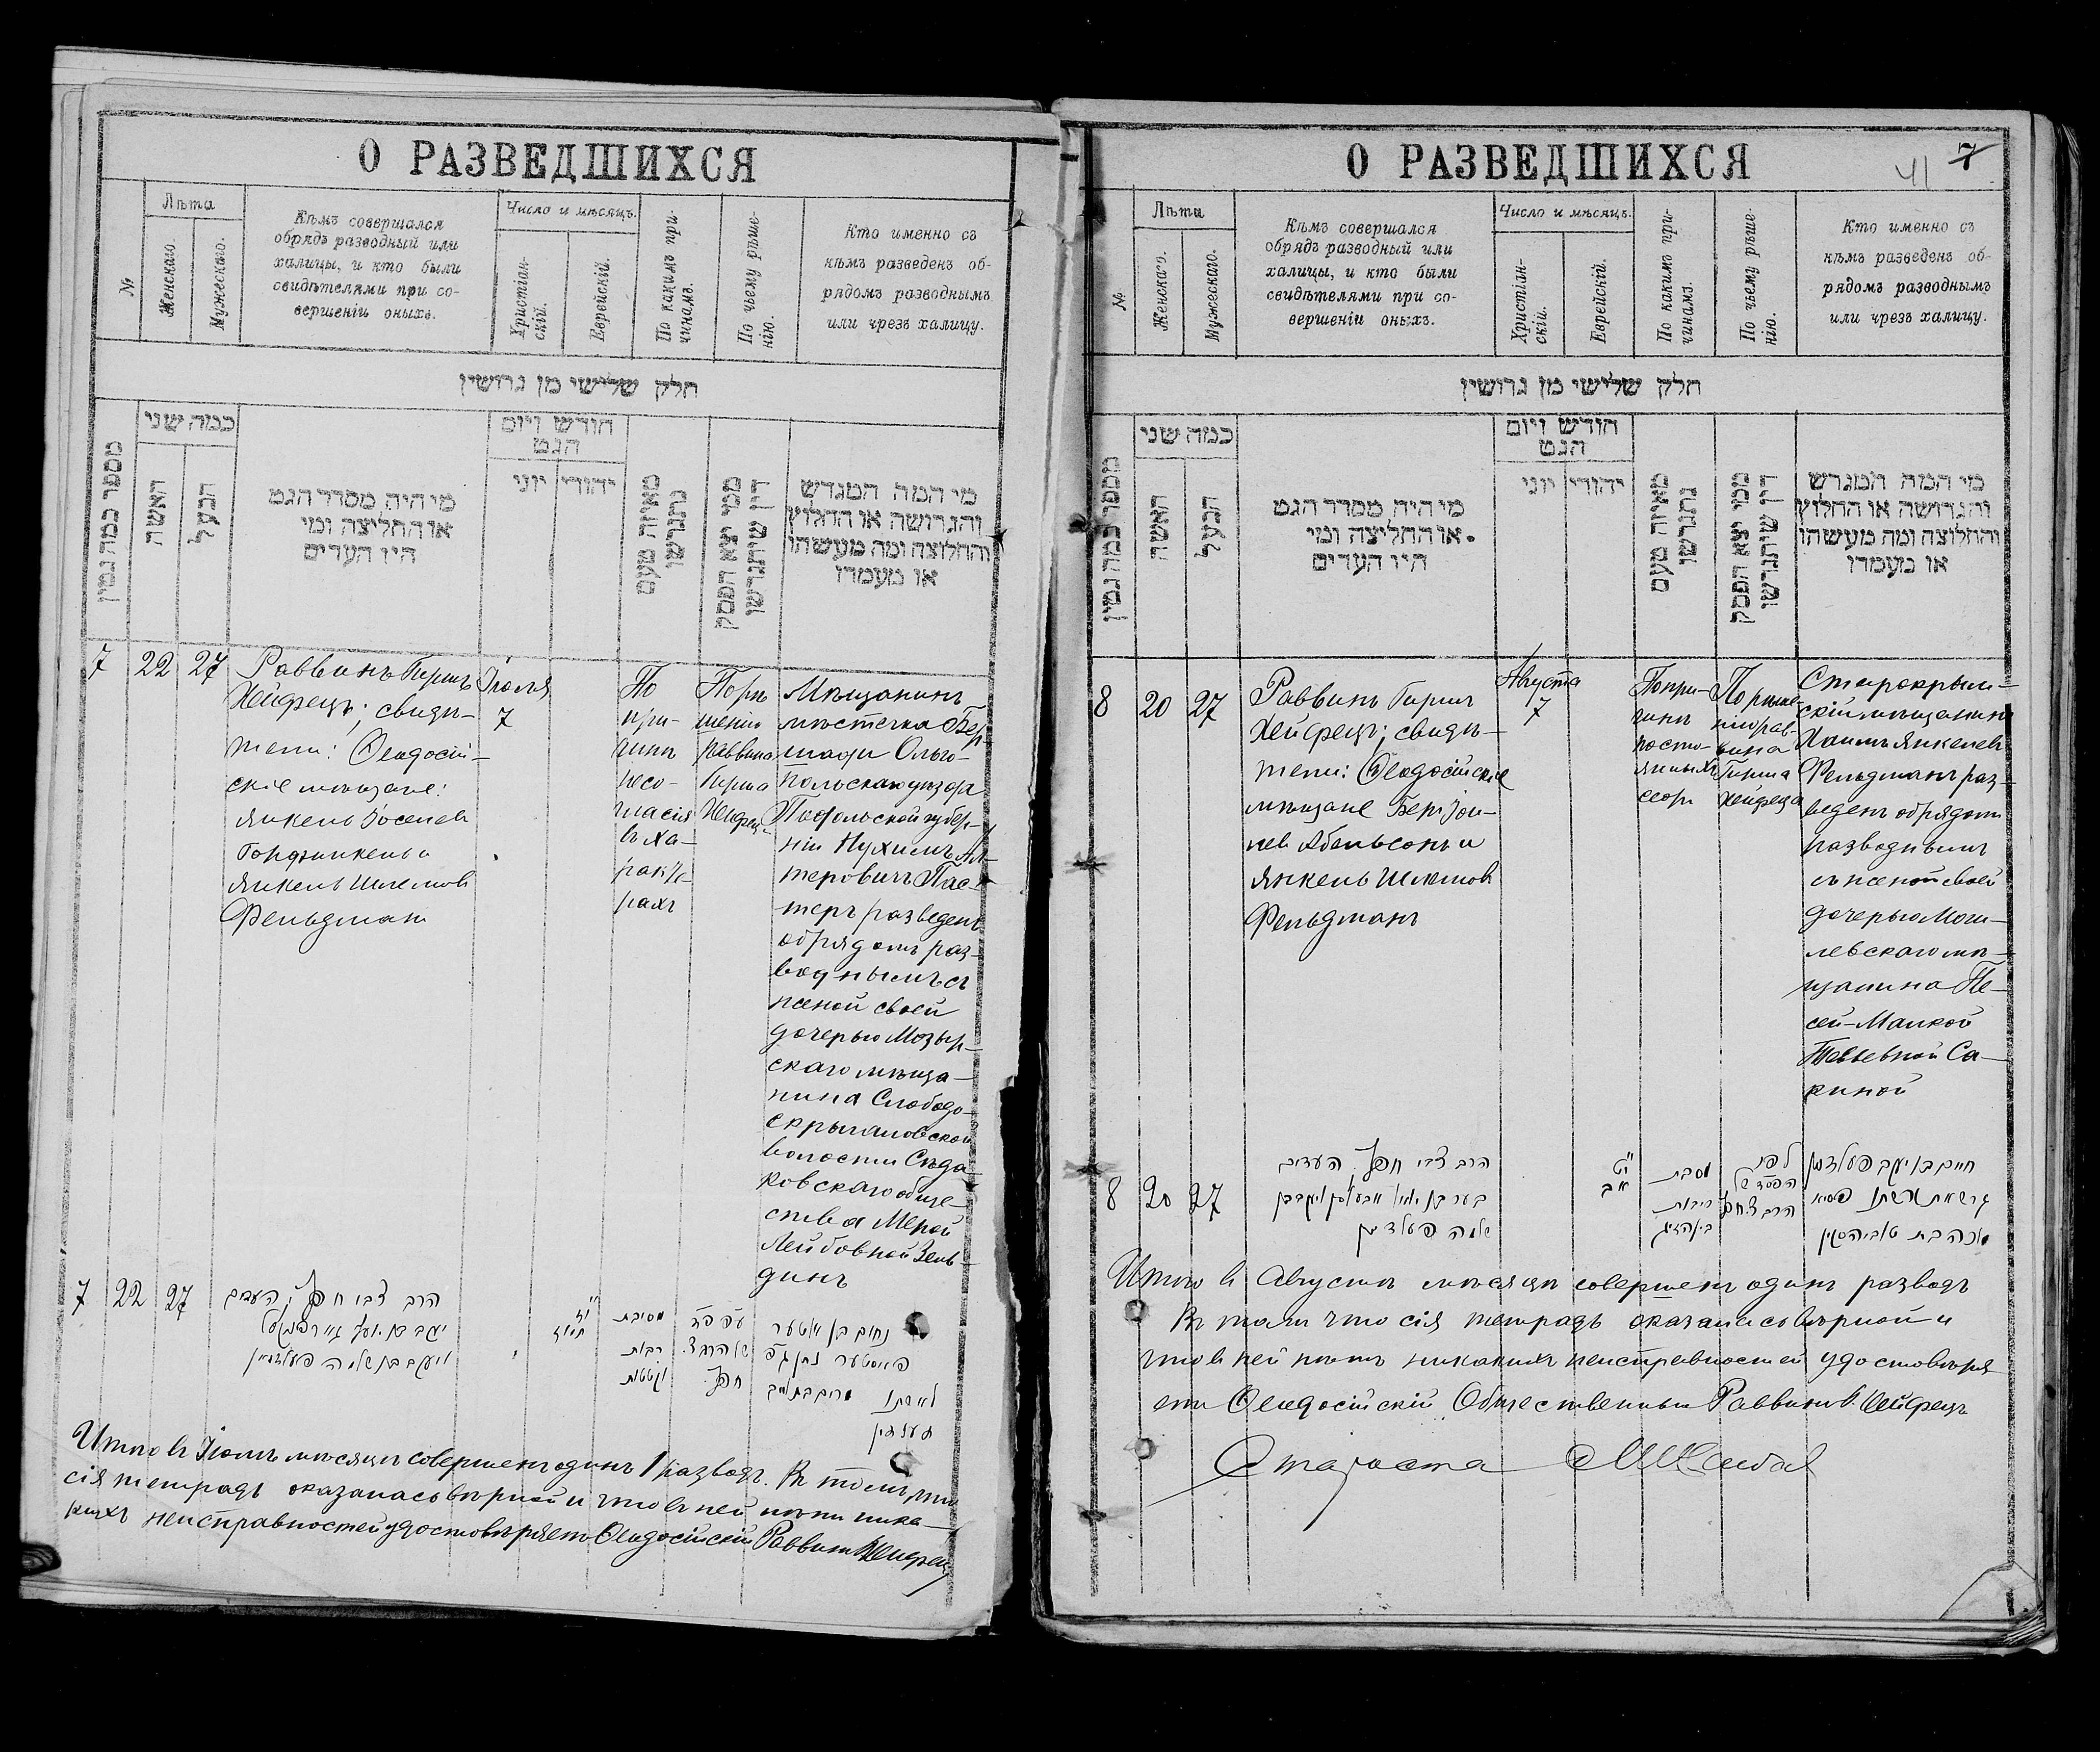 О РАЗВЕДШИХСЯ
№
Лѣта
Женскаго.
Мужескаго.
Кѣмъ совершался
обрядъ разводный или
халицы, и кто были
свидѣтелями при со-
вершеніи оныхъ.
Число и мѣсяцъ.
Христіан-
скій.
Еврейскій.
По какимъ при-
чинамъ.
По чьему рѣше-
нію.
Кто именно съ
кѣмъ разведенъ об-
рядомъ разводнымъ
или чрезъ халицу.
חלק שלישי מן גרושין
מספר כמה גטין
כמה שני
האשה
הבעל
מי היה מסדר הגט
או החליצה ומי
היו העדים
חודש ויום
הגט
יהודי
יוני
מאיזה טעם
נתגרשו
ממי יצא הפסק
דין שיתגרשו
מי המה המגרש
והגרושה או החלוץ
והחלוצה ומה מעשהו
או מעמדו
7
22
27
Раввинъ Гиршъ
Хейфецъ; свидѣ-
тели: Ѳеодосій-
скіе мѣщане:
Янкель Іоселев
Гарфинкель и
Янкель Шлемов
Фельдман
Іюля
7
По
при-
чинѣ
несо-
гласія
въ ха-
ракте-
рахъ
По рѣ-
шенію
раввина
Гирша
Хейфеца
Мѣщанинъ
мѣстечка Бер-
шади Ольго-
польскаго уѣзда
Подольской губер-
ніи Нухимъ Ал-
теровичъ Пас-
теръ разведенъ
обрядомъ раз-
воднымъ съ
женой своей
дочерью Мозыр-
скаго мѣща-
нина Слободо-
скрыгаловской
волости
ковскаго обще-
ства Мерой
Лейбовной Зель-
динъ
7
22
27
הרב צבי חפץ העדים
יעקב בן יוסף גארפינקעל
ויעקב בן שלמה פעלדמאן
תמוז
מסיבת
רבות
וקטטות
עפ פד
של הרב צ.
חפץ
נחום בן אלטער
פאסטער נתן גפ
לאשתו מרים בת לייב
זעלדין
Итого въ Іюлѣ мѣсяцѣ совершенъ одинъ 1 разводъ. Въ томъ, что
сія тетрадь оказалась вѣрной и что въ ней нѣтъ ника-
кихъ неисправностей удостовѣряетъ Ѳеодосійскій Раввинъ Г. Хейфецъ
О РАЗВЕДШИХСЯ
41
7
№
Лѣта
Женскаго.
Мужескаго.
Кѣмъ совершался
обрядъ разводный или
халицы, и кто были
свидѣтелями при со-
вершеніи оныхъ.
Число и мѣсяцъ.
Христіан-
скій.
Еврейскій.
По какимъ при-
чинамъ.
По чьему рѣше-
нію.
Кто именно съ
кѣмъ разведенъ об-
рядомъ разводнымъ
или чрезъ халицу.
חלק שלישי מן גרושין
מספר כמה גטין
כמה שני
האשה
הבעל
מי היה מסדר הגט
או החליצה ומי
היו העדים
חודש ויום
הגט
יהודי
יוני
מאיזה טעם
נתגרשו
ממי יצא הפסק
דין שיתגרשו
מי המה המגרש
והגרושה או החלוץ
והחלוצה ומה מעשהו
או מעמדו
8
20
27
Раввинъ Гирш
Хейфецъ; свидѣ-
тели: Ѳеодосійскіе
мѣщане Бер
лев Абельсонъ и
Янкель Шлемов
Фельдманъ
Августа
7
По при-
чинѣ
посто-
янныхъ
ссоръ
По рѣше-
нію рав-
вина
Гирша
Хейфеца
Старокрым-
скій мѣщанинъ
Хаимъ Янкелев
Фельдманъ раз-
веденъ обрядомъ
разводнымъ
съ женой своей
дочерью Моги-
левскаго мѣ-
щанина Пе-
сей-Малкой
Тевьевной Са-
киной
8
20
27
הרב צבי חפץ העדים
שלמה פעלדמן
אב
מסבת
ריבות
הרב צ. חפץ
חיים בן יעקב פעלדמן
גרש את אשתו פסיא
מלכה בת טוביה סאקין
Итого въ Августѣ мѣсяцѣ совершенъ одинъ разводъ
Въ томъ что сія тетрадь оказалась вѣрной и
что въ ней нѣтъ никакихъ неисправностей удостовѣря
етъ Ѳеодосійскій Общественный Раввинъ Г. Хейфецъ
Староста